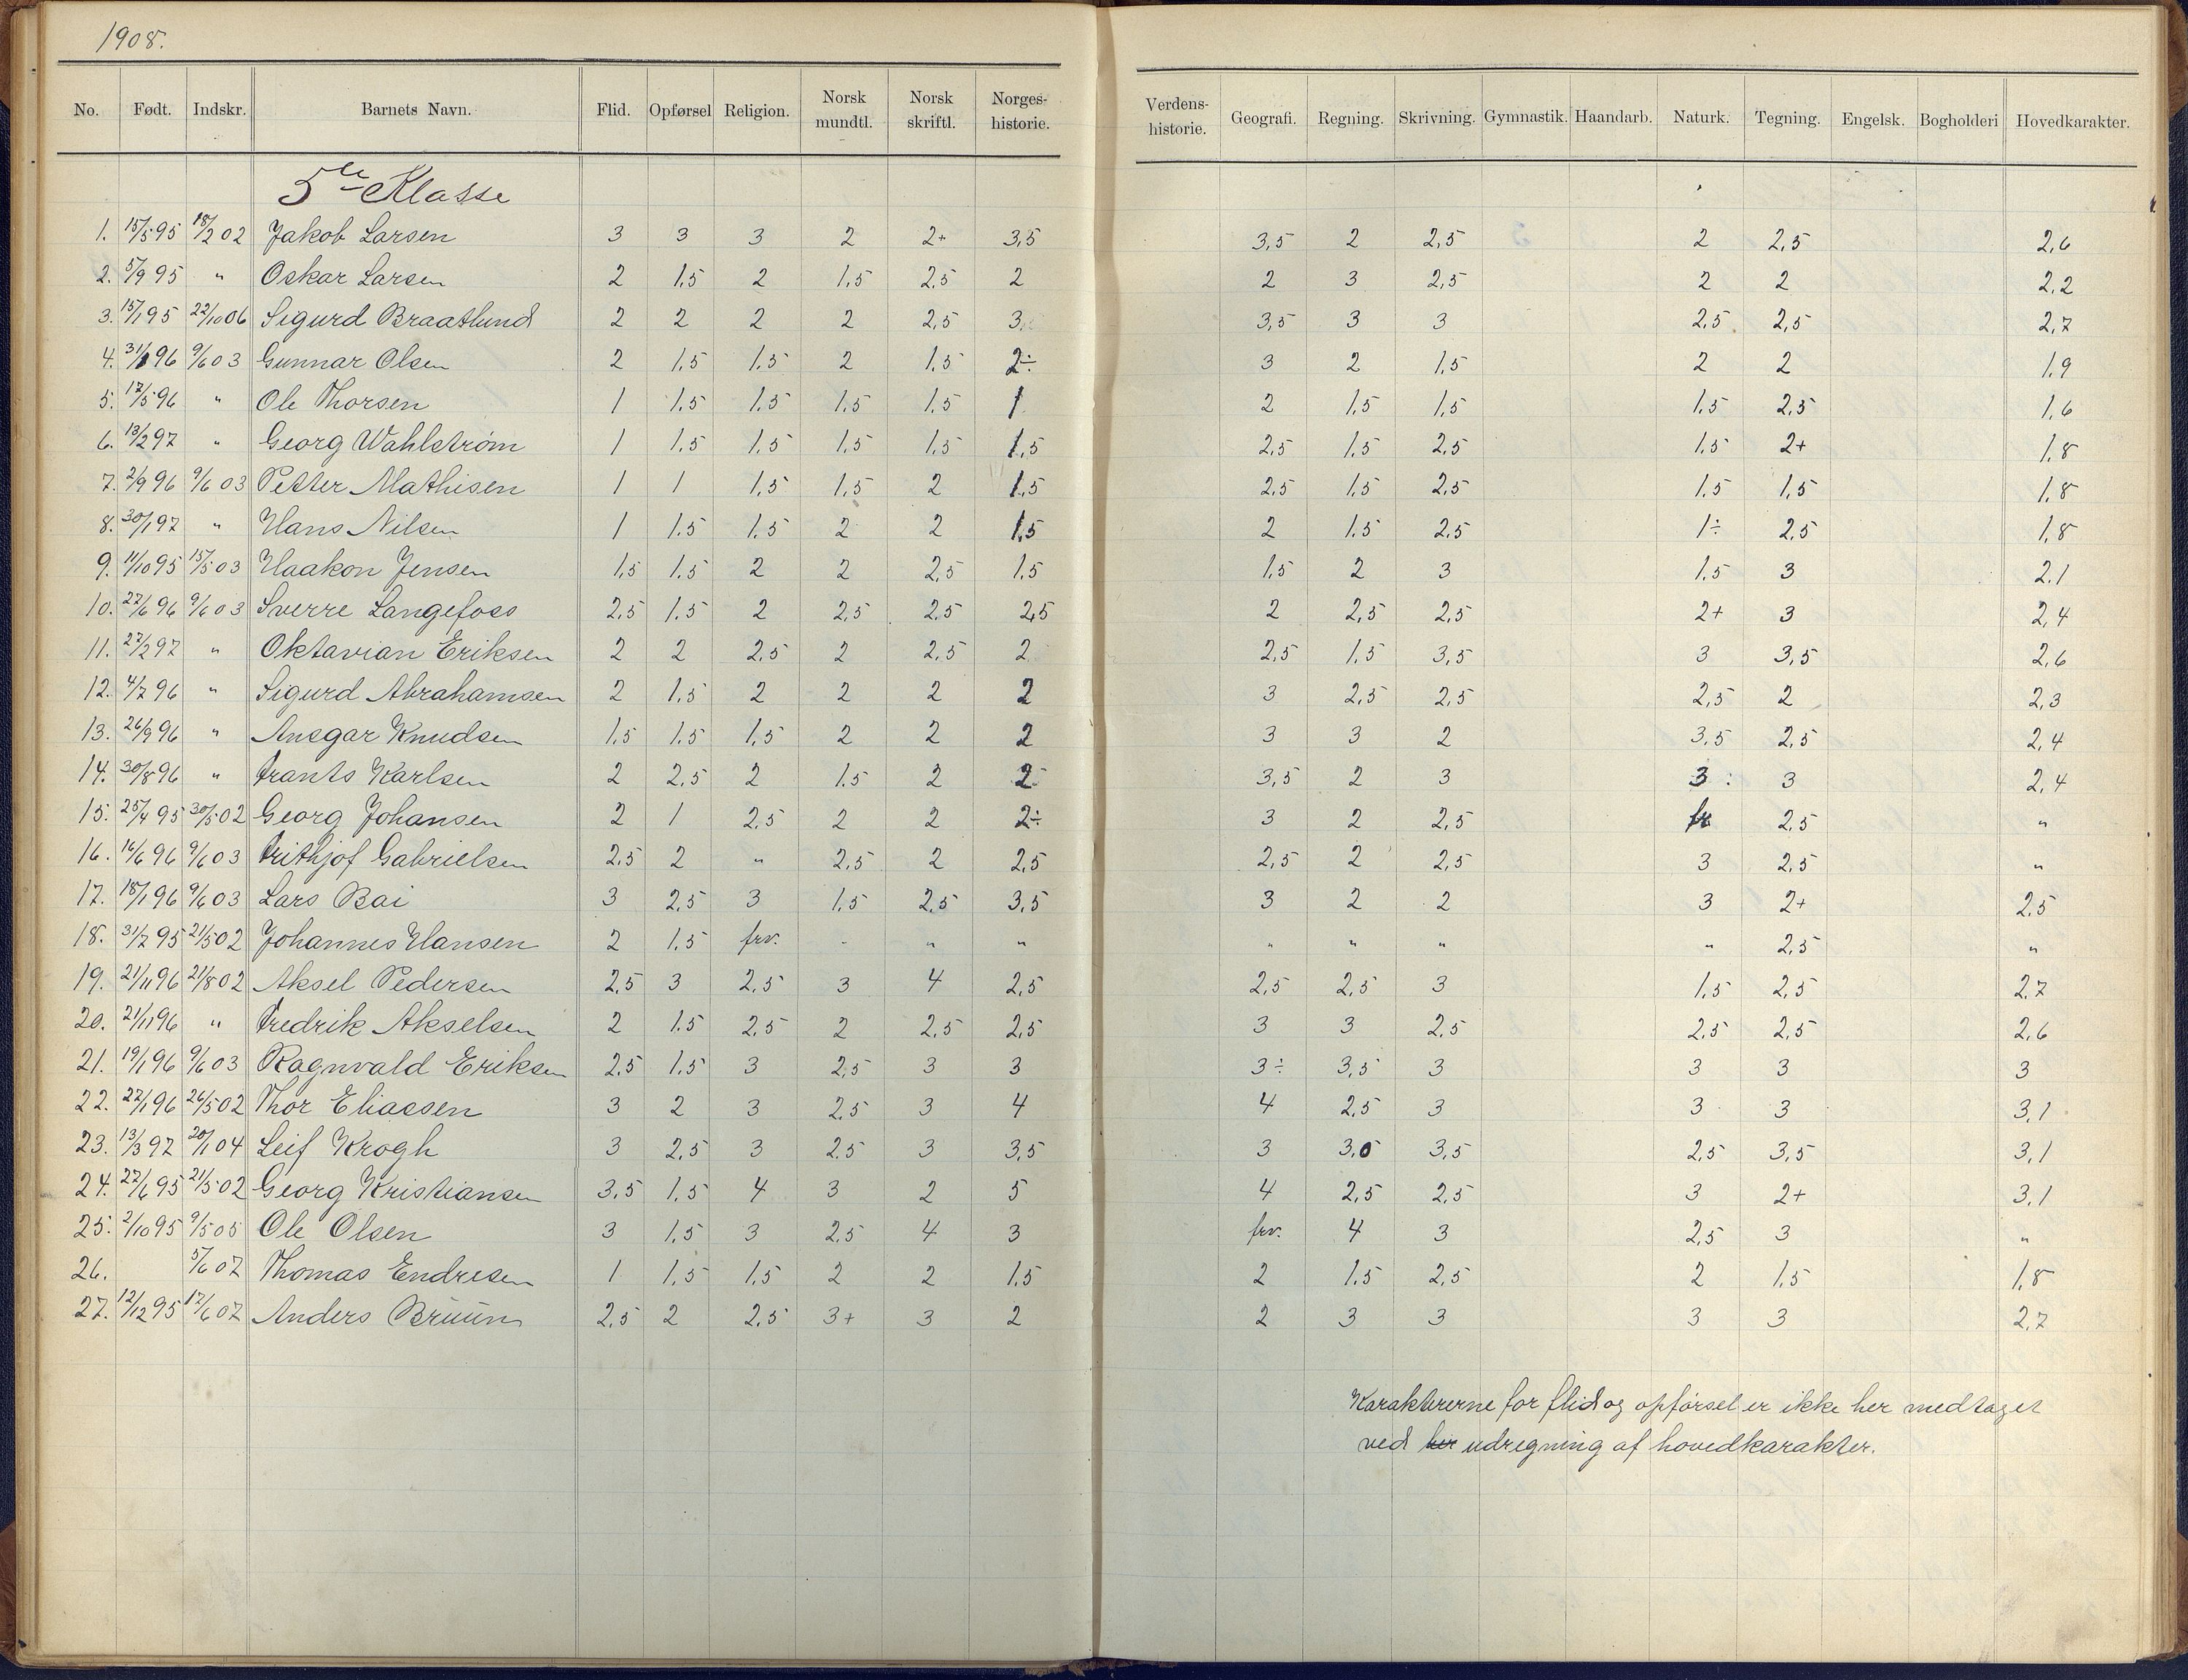 1908.
No. Født. Indskr. Barnets Navn. Flid. Opførsel Religion. Norsk mundtl. Norsk skriftl. Norges-historie. Verdens-historie. Geografi. Regning. Skrivning. Gymnastik. Haandarb. Naturk. Tegning. Engelsk. Bogholderi Hovedkarakter.
5te Klasse
1. 15/5 95 18/2 02 Jakob Larsen 3 3 3 2 2+ 3,5 3,5 2 2,5 2 2,5 2,6
2. 5/9 95 " Oskar Larsen 2 1,5 2 1,5 2,5 2 2 3 2,5 2 2 2,2
3. 15/1 95 22/10 06 Sigurd Braatlund 2 2 2 2 2,5 3, 3,5 3 3 2,5 2,5 2,7
4. 31/1 96 9/6 03 Gunnar Olsen 2 1,5 1,5 2 1,5 2÷ 3 2 1,5 2 2 1,9
5. 17/5 96 " Ole Thorsen 1 1,5 1,5 1,5 1,5 1 2 1,5 1,5 1,5 2,5 1,6
6. 13/2 97 " Georg Wahlstrøm 1 1,5 1,5 1,5 1,5 1,5 2,5 1,5 2,5 1,5 2+ 1,8
7. 2/9 96 9/6 03 Petter Mathisen 1 1 1,5 1,5 2 1,5 2,5 1,5 2,5 1,5 1,5 1,8
8. 30/1 97 " Hans Nilsen 1 1,5 1,5 2 2 1,5 2 1,5 2,5 1÷ 2,5 1,8
9. 11/10 95 15/5 03 Haakon Jensen 1,5 1,5 2 2 2,5 1,5 1,5 2 3 1,5 3 2,1
10. 27/6 96 9/6 03 Sverre Langefoss 2,5 1,5 2 2,5 2,5 2,5 2 2,5 2,5 2+ 3 2,4
11. 27/2 97 " Oktavian Eriksen 2 2 2,5 2 2,5 2 2,5 1,5 3,5 3 3,5 2,6
12. 4/7 96 " Sigurd Abrahamsen 2 1,5 2 2 2 2 3 2,5 2,5 2,5 2 2,3
13. 26/9 96 " Ansgar Knudsen 1,5 1,5 1,5 2 2 2 3 3 2 3,5 2,5 2,4
14. 30/8 96 " Frants Karlsen 2 2,5 2 1,5 2 2 3,5 2 3 3 3 2,4
15. 25/4 95 30/5 02 Georg Johansen 2 1 2,5 2 2 2÷ 3 2 2,5 fr 2,5 "
16. 16/6 96 9/6 03 Frithjof Gabrielsen 2,5 2 " 2,5 2 2,5 2,5 2 2,5 3 2,5 "
17. 18/1 96 9/6 03 Lars Bai 3 2,5 3 1,5 2,5 3,5 3 2 2 3 2+ 2,5
18. 31/7 95 21/5 02 Johannes Hansen 2 1,5 frv. " " " " " " " 2,5 "
19. 21/11 96 21/8 02 Aksel Pedersen 2,5 3 2,5 3 4 2,5 2,5 2,5 3 1,5 2,5 2,7
20. 21/11 96 " Fredrik Akselsen 2 1,5 2,5 2 2,5 2,5 3 3 2,5 2,5 2,5 2,6
21. 19/1 96 9/6 03 Ragnvald Eriksen 2,5 1,5 3 2,5 3 3 3÷ 3,5 3 3 3 3
22. 27/1 96 26/5 02 Thor Eliassen 3 2 3 2,5 3 4 4 2,5 3 3 3 3,1
23. 13/3 97 20/1 04 Leif Krogh 3 2,5 3 2,5 3 3,5 3 3,0 3,5 2,5 3,5 3,1
24. 27/6 95 21/5 02 Georg Kristiansen 3,5 1,5 4 3 2 5 4 2,5 2,5 3 2+ 3,1
25. 2/10 95 9/5 05 Ole Olsen 3 1,5 3 2,5 4 3 frv. 4 3 2,5 3 "
26. 5/6 07 Thomas Endresen 1 1,5 1,5 2 2 1,5 2 1,5 2,5 2 1,5 1,8
27. 12/12 95 17/6 07 Anders Bruun 2,5 2 2,5 3+ 3 2 2 3 3 3 3 2,7
Karaktererne for flid og opførsel er ikke her medtaget
ved her udregning af hovedkarakter.